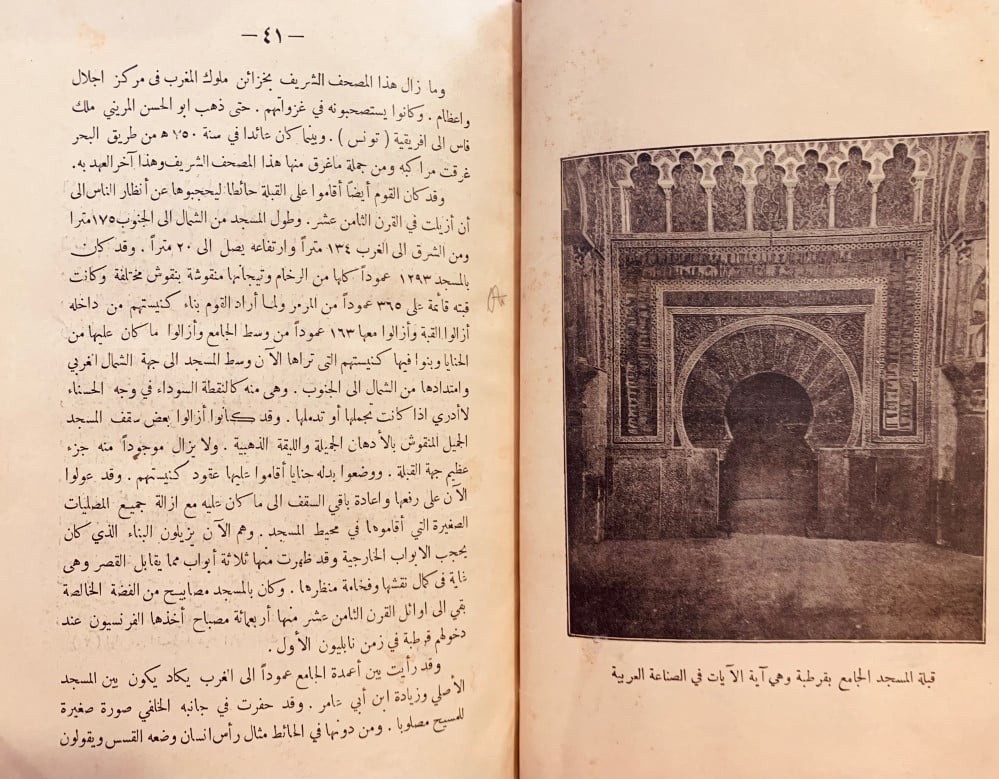 — ٤١ —
وما زال هذا المصحف الشريف بخزائن ملوك المغرب فى مركز اجلال
واعظام . وكانوا يستصحبونه في غزواتهم . حتى ذهب ابو الحسن المريني ملك
فاس الى افريقية ( تونس ) . وبينما كان عائدا في سنة ٧٥٠ ه من طريق البحر
غرقت مراكبه ومن جملة ماغرق منها هذا المصحف الشريف وهذا آخر العهد به .
وقد كان القوم أيضاً أقاموا على القبلة حائطا ليحجبوها عن أنظار الناس الى
أن أزيلت في القرن الثامن عشر . وطول المسجد من الشمال الى الجنوب ١٧٥ مترا
ومن الشرق الى الغرب ١٣٤ متراً وارتفاعه يصل الى ٢٠ متراً . وقد كان
بالمسجد ١٢٩٣ عموداً كلها من الرخام وتيجانها منقوشة بنقوش مختلفة وكانت
قبته قائمة على ٣٦٥ عموداً من المرمر ولما أراد القوم بناء كنيستهم من داخله
أزالوا القبة وأزالوا معها ١٦٣ عموداً من وسط الجامع وأزالوا ما كان عليها من
الحنايا وبنوا فيها كنيستهم التى تراها الآن وسط المسجد الى جهة الشمال الغربي
وامتدادها من الشمال الى الجنوب . وهى منه كالنقطة السوداء في وجه الحسناء
لا أدري اذا كانت تجملها أو تدملها . وقد كانوا أزالوا بعض سقف المسجد
الجميل المنقوش بالأدهان الجميلة واللبقة الذهبية . ولا يزال موجوداً منه جزء
عظيم جهة القبلة . ووضعوا بدله حنايا أقاموا عليها عقود كنيستهم . وقد عولوا
الآن على رفعها واعادة باقي السقف الى ما كان عليه مع ازالة جميع المصليات
الصغيرة التي أقاموها في محيط المسجد . وهم الآن يزيلون البناء الذي كان
يحجب الابواب الخارجية وقد ظهرت منها ثلاثة أبواب مما يقابل القصر وهى
غاية فى كمال نقشها وفخامة منظرها . وكان بالمسجد مصابيح من الفضة الخالصة
بقي الى اوائل القرن الثامن عشر منها أربعمائة مصباح أخذها الفرنسيون عند
دخولهم قرطبة في زمن نابليون الأول .
وقد رأيت بين أعمدة الجامع عموداً الى الغرب يكاد يكون بين المسجد
الأصلي وزيادة ابن أبي عامر . وقد حفرت في جانبه الخلفي صورة صغيرة
للمسيح مصلوبا . ومن دونها في الحائط مثال رأس انسان وضعه القسس ويقولون
قبلة المسجد الجامع بقرطبة وهي آية الآيات في الصناعة العربية